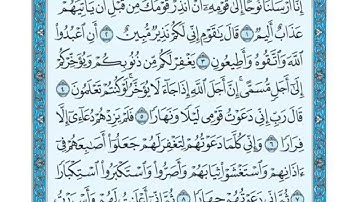 إِنَّا أَرْسَلْنَا نُوحًا إِلَىٰ قَوْمِهِ أَنْ أَنذِرْ قَوْمَكَ مِن قَبْلِ أَن يَأْتِيَهُمْ
عَذَابٌ أَلِيمٌ ١ قَالَ يَٰقَوْمِ إِنِّي لَكُمْ نَذِيرٌ مُّبِينٌ ٢ أَنِ ٱعْبُدُوا۟
ٱللَّهَ وَٱتَّقُوهُ وَأَطِيعُونِ ٣ يَغْفِرْ لَكُم مِّن ذُنُوبِكُمْ وَيُؤَخِّرْكُمْ
إِلَىٰ أَجَلٍ مُّسَمًّى إِنَّ أَجَلَ ٱللَّهِ إِذَا جَآءَ لَا يُؤَخَّرُ لَوْ كُنتُمْ تَعْلَمُونَ ٤
قَالَ رَبِّ إِنِّي دَعَوْتُ قَوْمِي لَيْلًا وَنَهَارًا ٥ فَلَمْ يَزِدْهُمْ دُعَآءِىٓ إِلَّا
فِرَارًا ٦ وَإِنِّي كُلَّمَا دَعَوْتُهُمْ لِتَغْفِرَ لَهُمْ جَعَلُوٓا۟ أَصَٰبِعَهُمْ فِىٓ
ءَاذَانِهِمْ وَٱسْتَغْشَوْا۟ ثِيَابَهُمْ وَأَصَرُّوا۟ وَٱسْتَكْبَرُوا۟ ٱسْتِكْبَارًا
٧ ثُمَّ إِنِّي دَعَوْتُهُمْ جِهَارًا ٨ ثُمَّ إِنِّىٓ أَعْلَنتُ لَهُمْ وَأَسْرَرْتُ